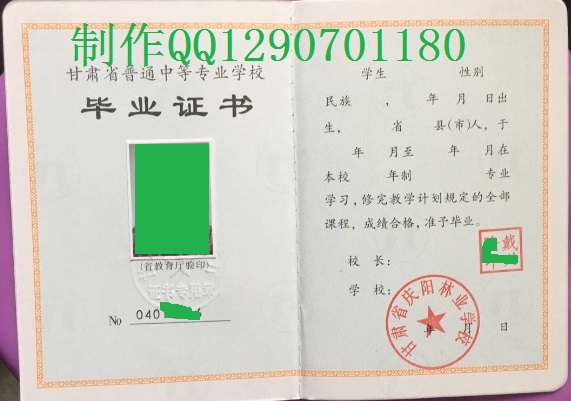 制作QQ1290701180
甘肃省普通中等专业学校
毕业证书
(省教育厅验印)
证书专用章
No 040 6
学生 性别
民族 , 年 月 日出
生, 省 县(市)人, 于
年 月至 年 月在
本校 年制 专业
学习, 修完教学计划规定的全部
课程, 成绩合格, 准予毕业。
校 长:
戴
学 校:
甘肃省庆阳林业学校
年 月 日